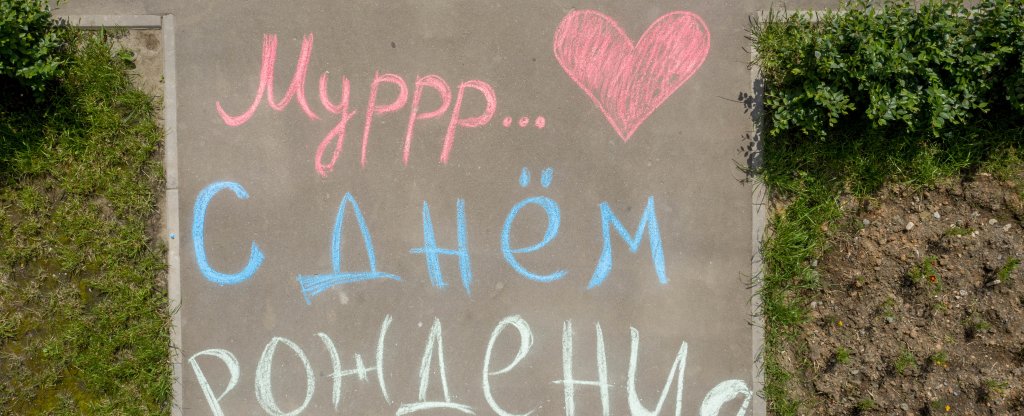 Муррр...
С днём
рождения